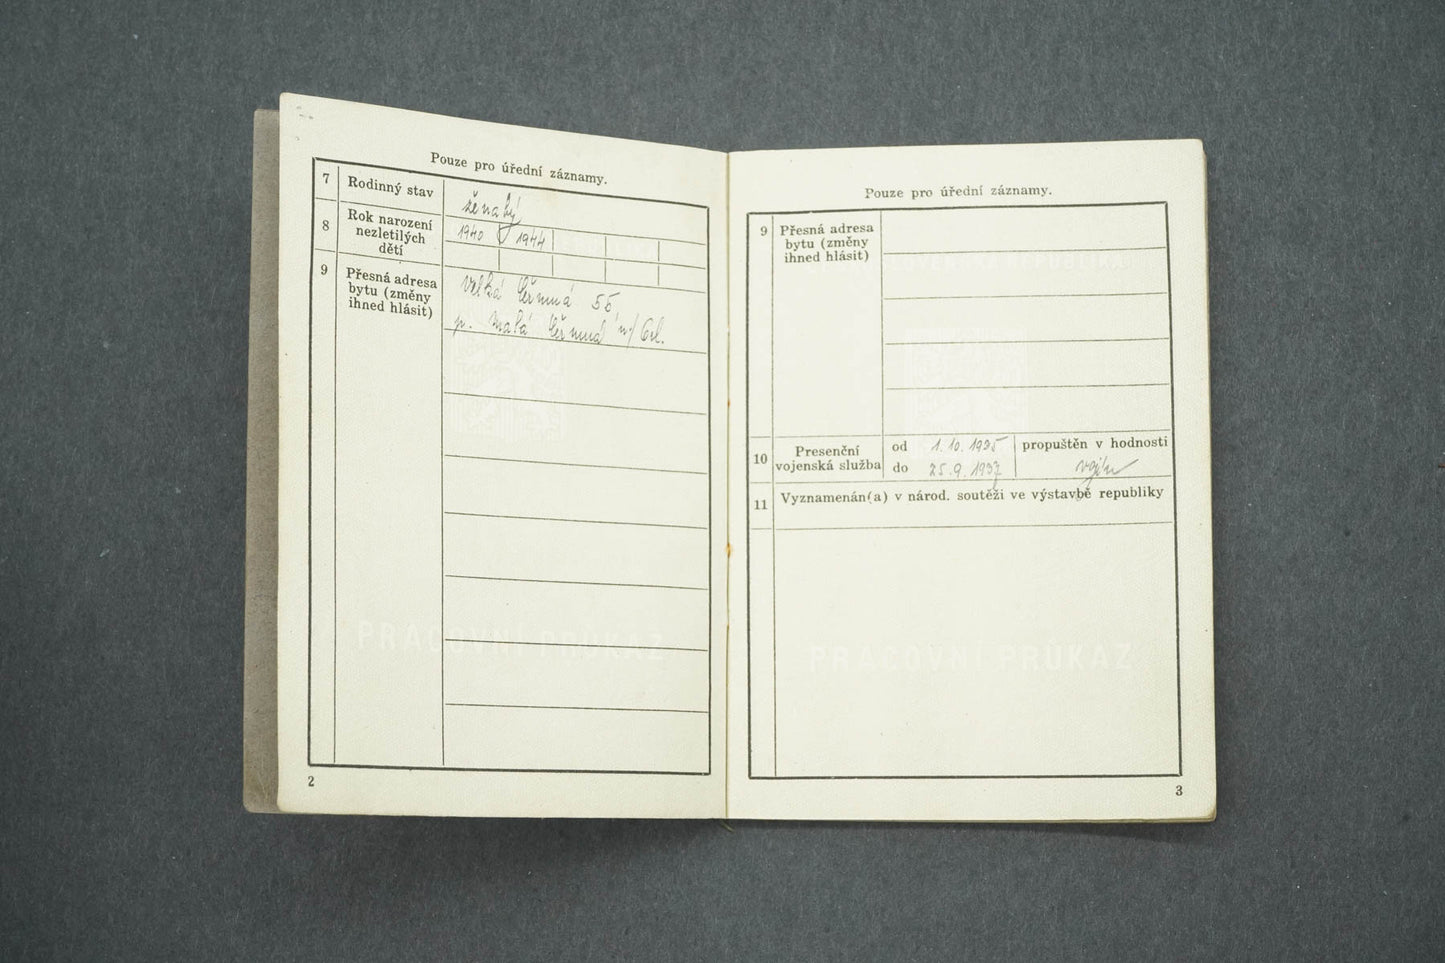 Pouze pro úřední záznamy.
7 Rodinný stav ženatý
8 Rok narození nezletilých dětí 1940 1944
9 Přesná adresa bytu (změny ihned hlásit)
Velká Čermná 55
p. Malá Čermná n/Orl.
PRACOVNÍ PRŮKAZ
2
Pouze pro úřední záznamy.
9 Přesná adresa bytu (změny ihned hlásit)
10 Presenční vojenská služba
od 1.10.1935 propuštěn v hodnosti
do 25.9.1937 vojín
11 Vyznamenán(a) v národ. soutěži ve výstavbě republiky
PRACOVNÍ PRŮKAZ
3